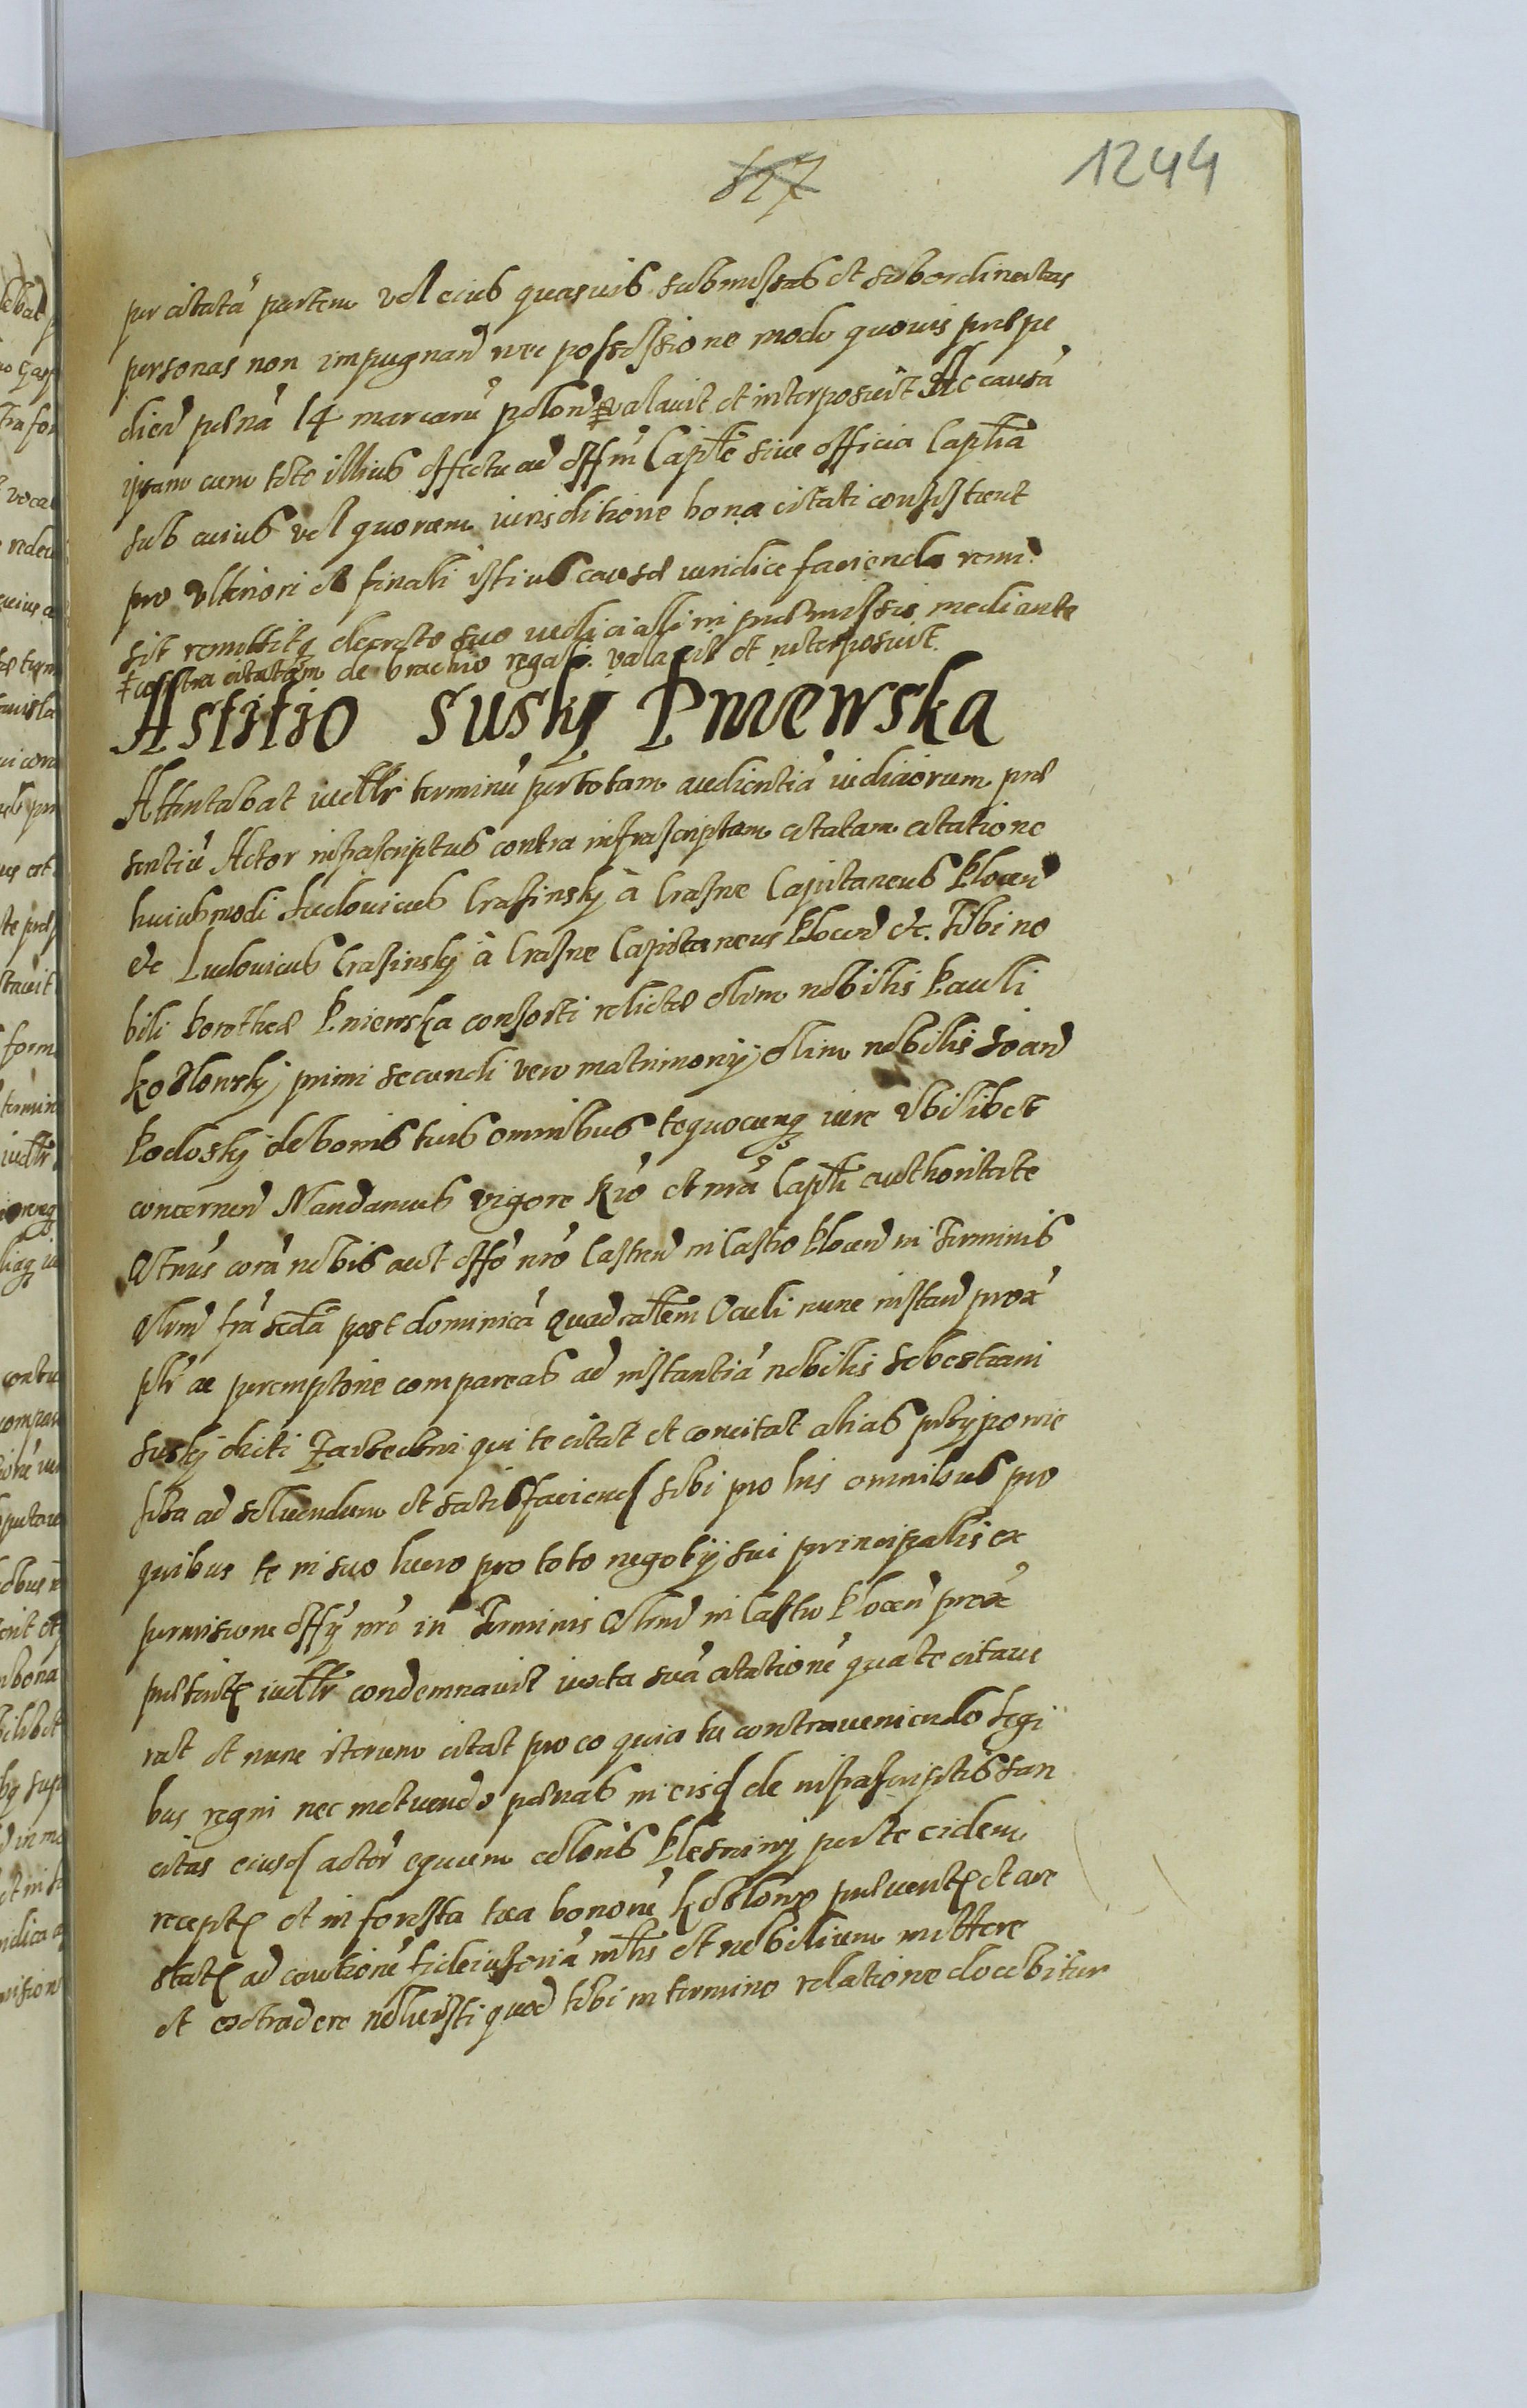 827
1244
per citatā partem vel eius quasuis submissas et subordinatas
personas non impugnand nec possessione modo quouis præpe
diend pœnā 14 marcarū polon valauit et interposuit Ac causā
ipsam cum toto illius effectu ad offm Captle siue officia Captlia
sub cuius vel quorum iurisditione bona citati consistent
pro vlteriori et finali istius causæ iuridice faciendo remi
sit remittitq decreto suo iudiciali in præmissis mediante
contra citatam de brachio regali valauit et interposuit
Astitio Susky Pniewska
Attentabat iudltr terminū per totam audientiā iudiciorum præ
sentiū Actor infrascriptus contra infrascriptam citatam citatione
huiusmodi Ludouicus Crasinsky à Crasne Capitaneus Plocen
etc Ludouicus Crasinsky à Crasne Capitaneus Plocen etc. Tibi no
bili Dorotheæ Pniewska consorti relictæ olim nobilis Pauli
Kozlonsky primi secundi vero matrimonij olim nobilis Joan
Podosky de bonis tuis omnibus tequocunq iure vbilibet
concernen Mandamus vigore Rio et nrā Captli authoritate
Qtnus corā nobis aut offō nrō Castren in Castro Plocen in Terminis
Qlrnd frā scdā post dominicā Quadratlem Oculi nunc instan prox
plr ac peremptorie compareas ad instantiā nobilis Sebastiani
Susky dicti qui te citat et concitat alias przyponie
siba ad soluendum et satisfaciend sibi pro his omnibus pro
quibus te in suo lucro pro toto negotij sui principalis ex
permisione offy nrō in Terminis Qlrnd in Castro Plocen prox
præterit iudltr condemnauit iuxta suā citationē qua te citaue
rat et nunc iterum citat pro eo quia tu contraueniendo legi
bus regni nec metuendo pœnas in eisd de infrascriptis san
citas eiusd actor equum coloris Plesniwy per te eidem
recept et in foresta tua bonorū Kozlonp præuent et are
stat ad cautionē fideiussoriā mltis et nobilium mittere
et extradere noluisti quod tibi in termino relatione docebitur